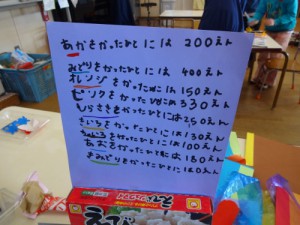 あかさかったひとには 200えん
みどりさかったひとには 400えん
オレンジをかったひとには 150えん
ピンクさかったひとには 330えん
むらさきさかったひとには 250えん
きいろさかったひとには 130えん
ちゃいろをかったひとには 100えん
あおさかったひとには 180えん
きみどりさかったひとには 120えん
えび